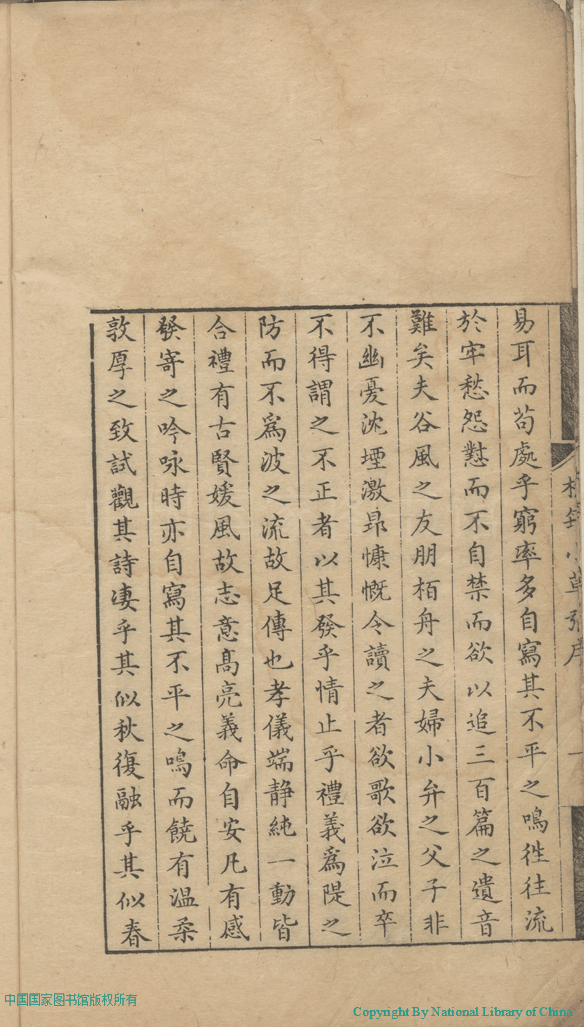 易耳而苟處乎窮率多自寫其不平之鳴徃往流
於牢愁怨懟而不自禁而欲以追三百篇之遺音
難矣夫谷風之友朋栢舟之夫婦小弁之父子非
不幽憂沈堙激昻慷慨令讀之者欲歌欲泣而卒
不得謂之不正者以其發乎情止乎禮義爲隄之
防而不爲波之流故足傳也孝儀端静純一動皆
合禮有古賢媛風故志意髙亮義命自安凡有感
發寄之吟咏時亦自寫其不平之鳴而饒有温柔
敦厚之致試觀其詩凄乎其似秋復融乎其似春
小草
中国国家图书馆版权所有
Copyright By National Library of China